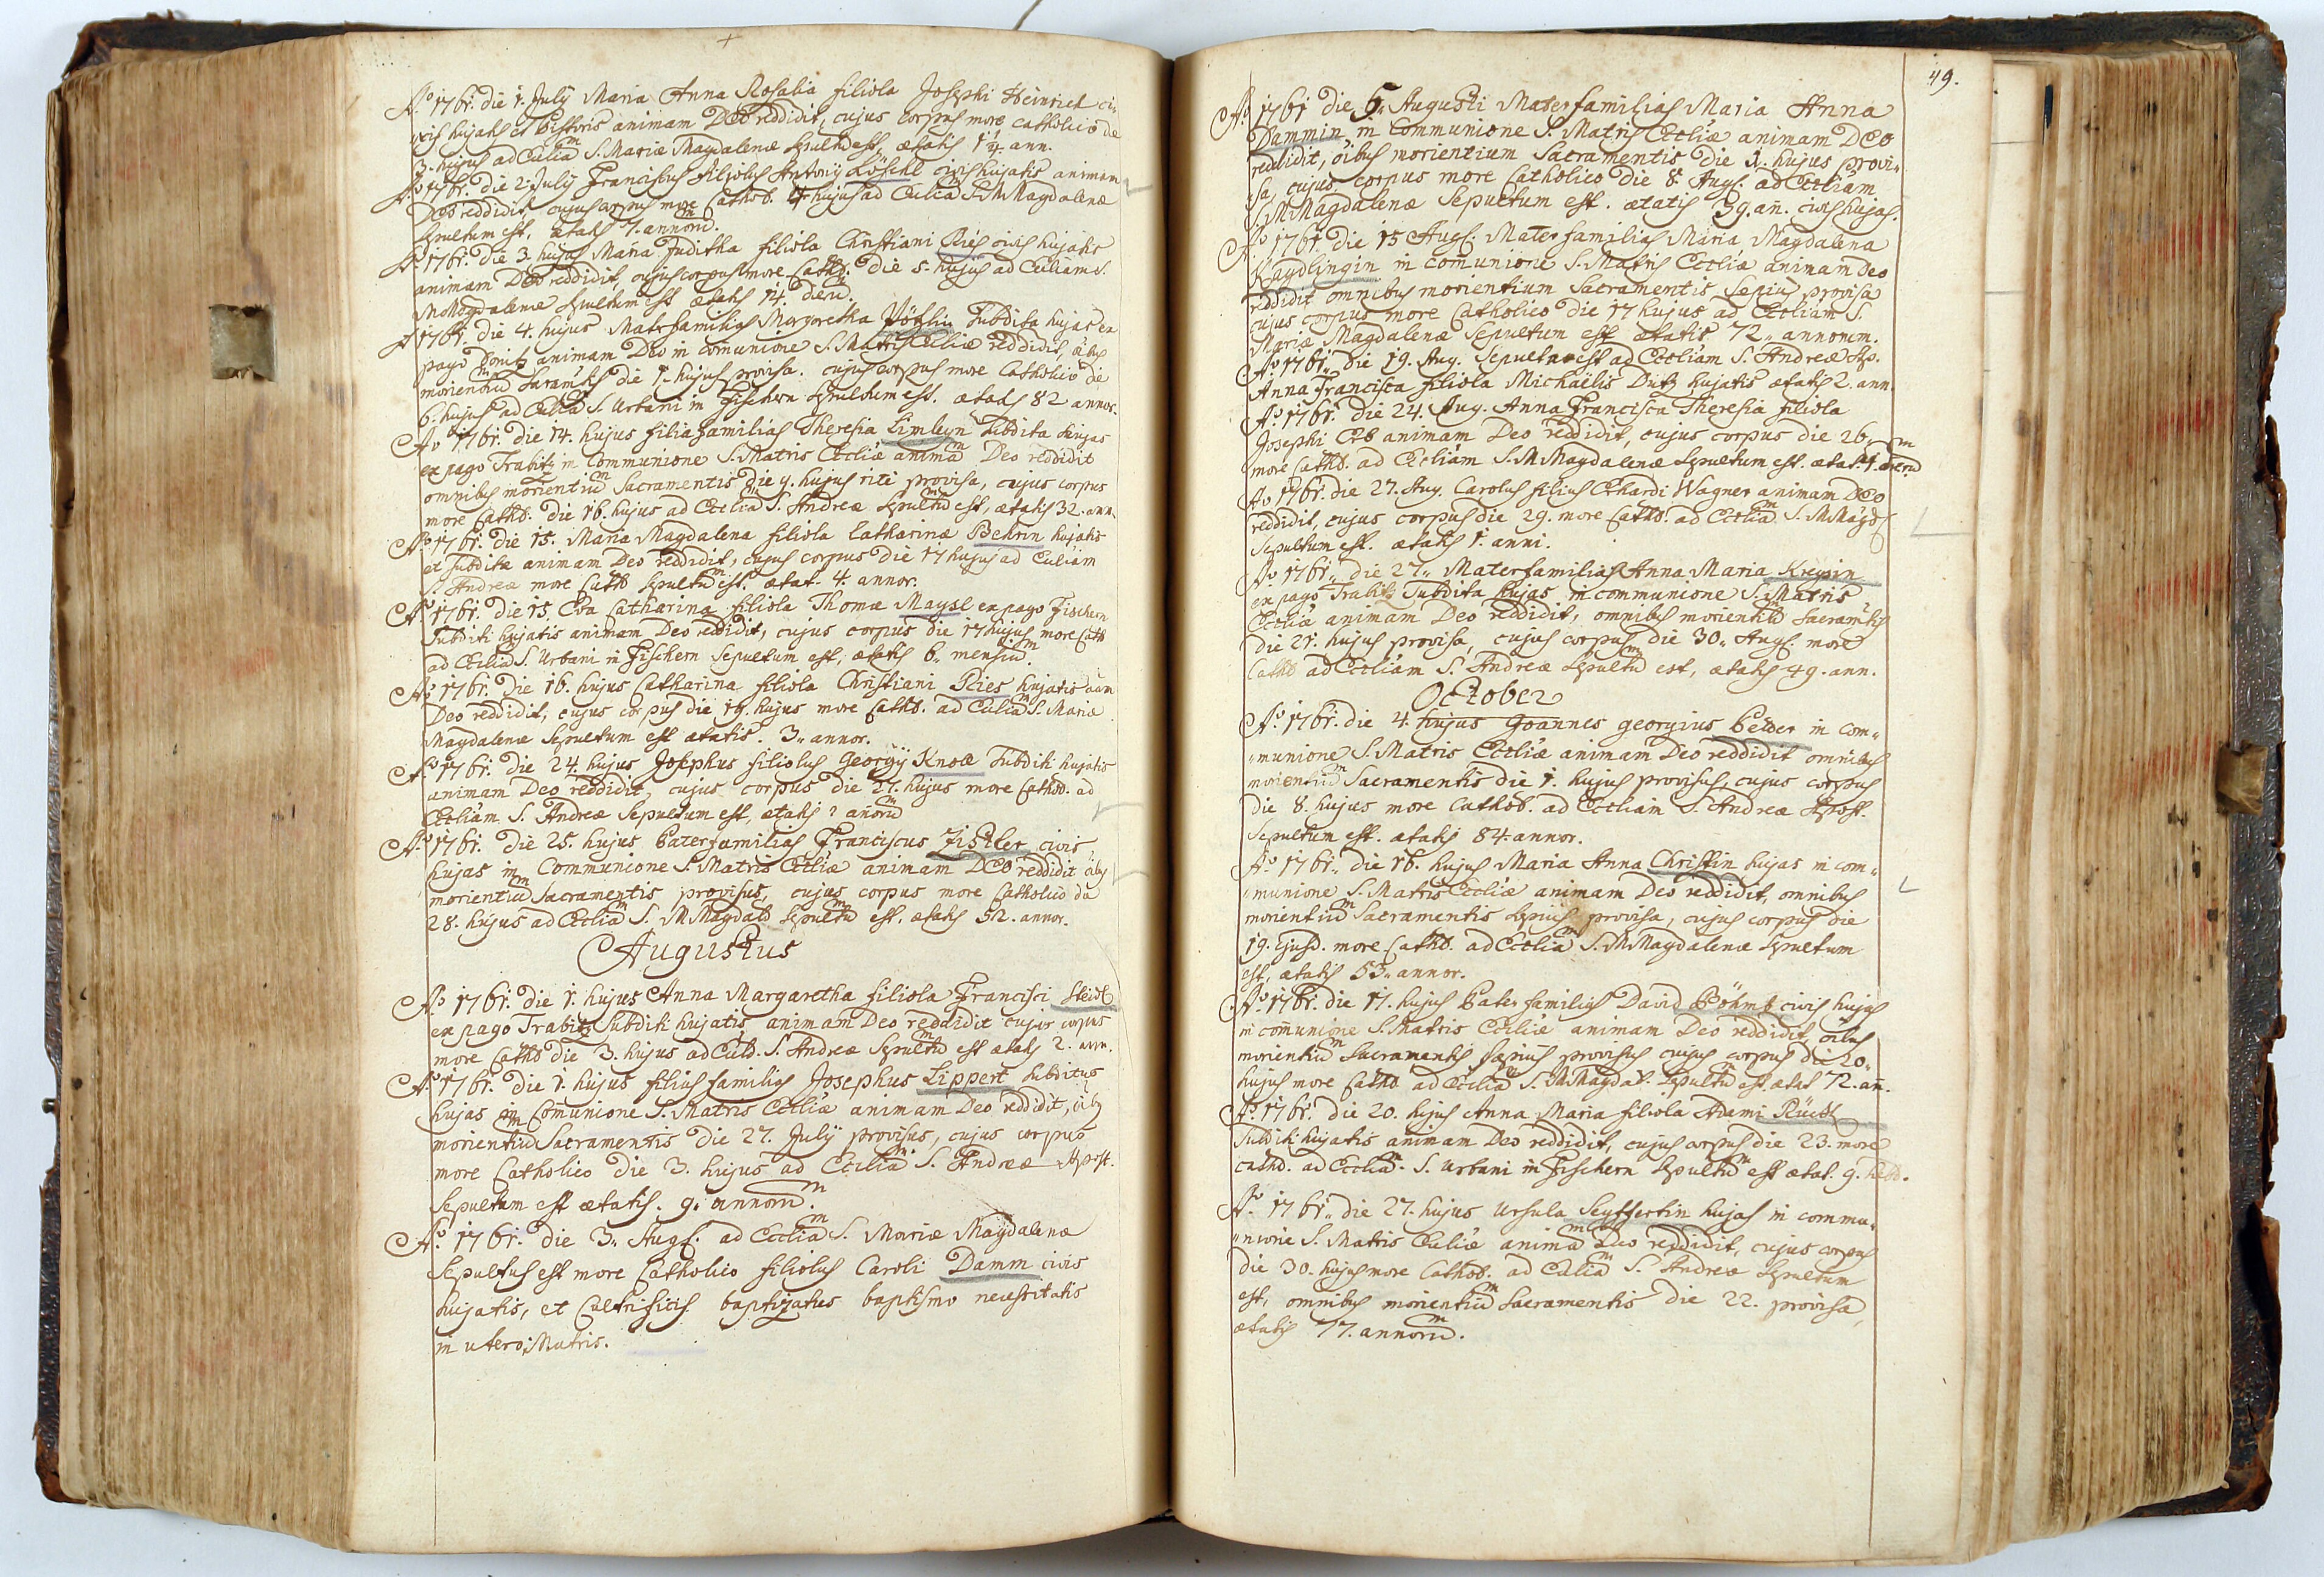 Ao 1761. die 1. July Maria Anna Rosalia filiola Josephi Heinrich ci-
vis hujatis et Pistoris animam DEO reddidit, cujus corpus more catholico de
3. hujus ad Ecclia͠m S. Mariæ Magdalenæ sepultu͠m est, ætatis ann.
Ao 1761. die 2. July Franciscus filiolus Antonij Löschl civis hujatis animam
DEO reddidit, cujus corpus more Cathol. 4. hujus ad Ecclia S. M Magdalenæ
sepultum est, ætatis 7. annoru͠m.
Ao 1761. die 3. hujus Maria Juditha filiola Christiani Ries civis hujatis
animam DEO reddidit, cujus corpus more Cathol. die 5. hujus ad Eccliam S.
M Magdalenæ sepultum est ætatis 14. dieru͠.
Ao 1761. die 4. hujus Materfamilias Margaretha subdita hujas ex
pago Donitz animam Deo in com͠unione S. Matris Eccliæ reddidit, o͠ibus
morientiu͠m Saram͠tis die 1. hujus provisa. cujus corpus more Catholico die
6. hujus ad Ecclia͠ S. Urbani in Fischern sepultum est. ætatis 82 annor.
Ao 1761. die 14. hujus filiafamilias Theresia Limleyn subdita hujas
ex pago Trabitz in Communione S. Matris Eccliæ anima͠m Deo reddidit
omnibus morientiu͠m Sacramentis die 9. hujus rite provisa, cujus corpus
more Cathol. die 16. hujus ad Ecclia͠m S. Andreæ sepultu͠m est, ætatis 32. ann.
Ao 1761. die 15. Maria Magdalena filiola Catharinæ Bekrin hujatis
et subditæ animam Deo reddidit, cujus corpus die 17 hujus ad Eccliam
S. Andreæ more Cathol sepultu͠m est. ætat. 4. annor.
Ao 1761. die 15 Eva Catharina filiola Thomæ Maysl ex pago Fischern
Subditi hujatis animam Deo reddidit, cujus corpus die 17 hujus more Cath
ad Ecclia͠ S. Urbani in Fischern Sepultum est, ætatis 6. mensiu͠m.
Ao 1761. die 16. hujus Catharina filiola Christiani Ries hujatis a͠am
Deo reddidit, cujus corpus die 19. hujus more Cathol. ad Ecclia͠m S. Mariæ
Magdalenæ Sepultum est ætatis. 3. annor.
Ao 1761. die 24. hujus Josephus filiolus Georgij Knoll Subditi hujatis
animam Deo reddidit, cujus corpus die 27. hujus more Cathol. ad
Eccliam S. Andreæ Sepultum est, ætatis 2 an͠oru͠m
Ao 1761. die 25. hujus Paterfamilias Franciscus Zistler civis
hujas in Communione S. Matris Eccliæ animam DEO reddidit o͠ibus
morientiu͠m Sacramentis provisus, cujus corpus more Catholico die
28. hujus ad Ecclia͠m S. M Magdal sepultu͠m est, ætatis 52. annor.
Augustus
Ao 1761. die 1. hujus Anna Margaretha filiola Francisci Steidl
ex pago Trabitz Subditi hujatis animam Deo reddidit cujus corpus
more Cathol die 3. hujus ad Eccl. S. Andreæ Sepultu͠m est ætatis 2. ann.
Ao 1761. die 1. hujus filius familias Josephus Lippert subditus
hujas in Com͠unione S. Matris Eccliæ animam Deo reddidit, o͠ibus
morientiu͠m Sacramentis die 27. July provisus, cujus corpus
more Catholico die 3. hujus ad Ecclia͠m S. Andreæ Apost.
Sepultum est ætatis. 9. annoru͠m.
Ao 1761. die 3. Aug. ad Ecclia͠m S. Mariæ Magdalenæ
Sepultus est more Catholico filiolus Caroli Damm civis
hujatis, et Cultrificis baptizatus baptismo necessitatis
in utero Matris.
49.
Ao 1761 die 6. Augusti Materfamilias Maria Anna
Dammin in Communione S. Matris Eccliæ animam DEO
reddidit, o͠ibus morientium Sacramentis die 1. hujus provi-
sa, cujus corpus more Catholico die 8. Aug. ad Eccliam
S. M Magdalenæ Sepultum est. ætatis 39. an͠. civis hujas.
Ao 1761 die 15 Aug. Materfamilias Maria Magdalena
Kaydlingin in com͠unione S. Matris Eccliæ animam Deo
reddidit omnibus morientium Sacramentis Sepius provisa
cujus corpus more Catholico die 17 hujus ad Eccliam S.
Mariæ Magdalenæ Sepultum est ætatis 72. annorum.
Ao 1761. die 19. Aug. Sepulta est ad Eccliam S. Andreæ Ap.
Anna Francisca filiola Michaelis Dutz hujatis ætatis 2. ann.
Ao 1761. die 24. Aug. Anna Francisca Theresia filiola
Josephi Erb animam Deo reddidit, cujus corpus die 26.
more Cathol. ad Eccliam S. M Magdalenæ Sepultum est. ætat. 4. dieru͠m
Ao 1761. die 27. Aug. Carolus filius Erhardi Wagner animam DEO
reddidit, cujus corpus die 29. more Cathol. ad Ecclia͠m S. M Magd
Sepultum est. ætatis 1. anni.
Ao 1761. die 27. Materfamilias Anna Maria Kreysin
ex pago Trabitz Subdita hujas in communione S. Matris
Eccliæ animam Deo reddidit, omnibus morientiu͠m Sacram͠tis
die 21. hujus provisa, cujus corpus die 30. Aug. more
Cathol ad Eccliam S. Andreæ Sepultu͠m est, ætatis 49. ann.
October
Ao 1761. die 4. hujus Joannes Georgius Pelder in com-
munione S. Matris Eccliæ animam Deo reddidit omnibus
morientiu͠m Sacramentis die 1. hujus provisus, cujus corpus
die 8. hujus more Cathol. ad Eccliam S. Andreæ Apost.
Sepultum est. ætatis 84. annor.
Ao 1761. die 16. hujus Maria Anna Christlin hujas in com-
munione S. Matris Eccliæ animam Deo reddidit, omnibus
morientiu͠m Sacramentis sepius provisa, cujus corpus die
19. Ejusd. more Cathol. ad Ecclia͠m S. M Magdalenæ sepultum
est, ætatis 53. annor.
Ao 1761. die 17. hujus Pater familias David Böhmb civis hujas
in com͠unione S. Matris Eccliæ animam Deo reddidit, o͠ibus
morientiu͠m Sacramentis sæpius provisus cujus corpus die 20.
hujus more Cathol ad Ecclia͠ S. M Magdal. Sepultu͠ est ætat 72. an͠.
Ao 1761. die 20. hujus Anna Maria filiola Adami Rückl
Subditi hujatis animam Deo reddidit, cujus corpus die 23. more
cathol. ad Ecclia͠m. S. Urbani in Fischern sepultu͠m est ætat. 9. hebd.
Ao 1761. die 27. hujus Ursula Seyffertin hujas in commu-
nione S. Matris Eccliæ anima͠m Deo reddidit, cujus corpus
die 30. hujus more Cathol. ad Ecclia͠m S. Andreæ Sepultum
est, omnibus morientiu͠m Sacramentis die 22. provisa,
ætatis 77. annoru͠m.